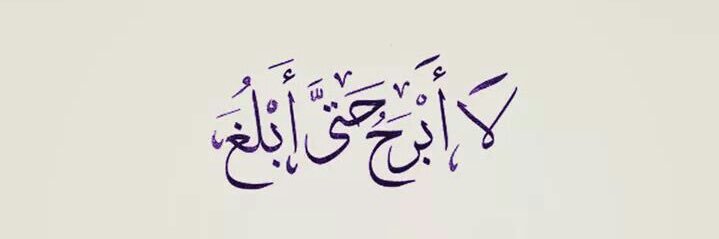 لَا أَبْرَحُ حَتَّىٰ أَبْلُغَ